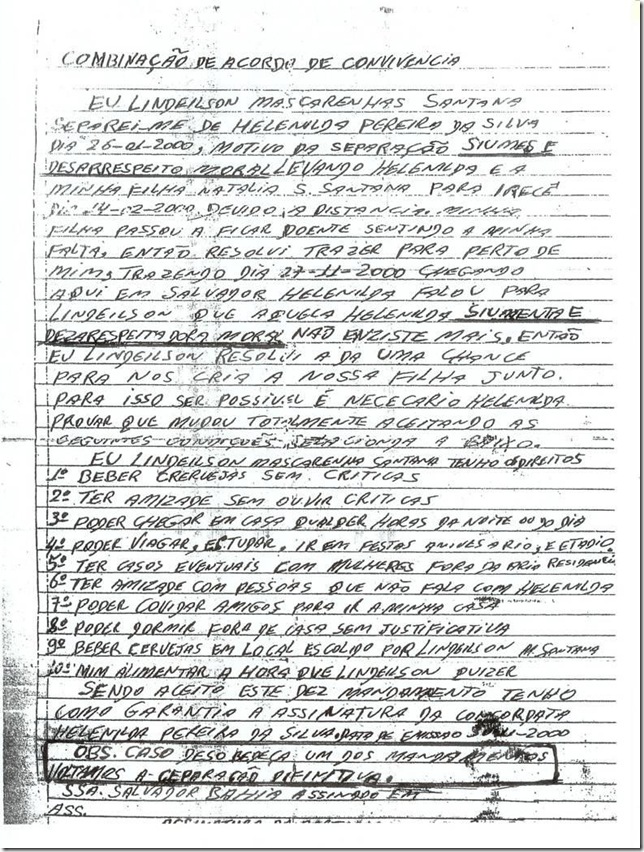 COMBINAÇÃO DE ACORDO DE CONVIVENCIA
EU LINDEILSON MASCARENHAS SANTANA
SEPAREI-ME DE HELENILDA PEREIRA DA SILVA
DIA 26-01-2000, MOTIVO DA SEPARAÇÃO SIUMES E
DESARRESPEITO MORAL LEVANDO HELENILDA E A
MINHA FILHA NATALIA S. SANTANA PARA IRECÊ
DEVIDO A DISTANCIA. MINHA
FILHA PASSOU A FICAR DOENTE SENTINDO A MINHA
FALTA, ENTÃO RESOLVI TRAZER PARA PERTO DE
MIM, TRAZENDO DIA 27-11-2000 CHEGANDO
AQUI EM SALVADOR HELENILDA FALOU PARA
LINDEILSON QUE AQUELA HELENILDA SIUMENTA E
DEZARESPEITADORA MORAL NÃO ENZISTE MAIS, ENTÃO
EU LINDEILSON RESOLVI A DA UMA CHANCE
PARA NOS CRIA A NOSSA FILHA JUNTO.
PARA ISSO SER POSSIVEL É NECECARIO HELENILDA
PROVAR QUE MUDOU TOTALMENTE ACEITANDO AS
SEGUINTES A BAIXO.
EU LINDEILSON MASCARENHA SANTANA TENHO OS DIREITOS
1º BEBER CREVEJAS SEM CRITICAS
2º TER AMIZADE SEM OUVIR CRITICAS
3º PODER CHEGAR EM CASA QUALQUER HORAS DA NOITE OU DO DIA
4º PODER VIAGAR, ESTUDAR, IR EM FESTAS ANIVESARIO, E ESTADIO.
5º TER CASOS EVENTUAIS COM MULHERES FORA DA ARIA RESIDANCIA
6º TER AMIZADE COM PESSOAS QUE NÃO FALA COM HELENILDA
7º PODER COVIDAR AMIGOS PARA IR A MINHA CASA
8º PODER DORMIR FORA DE CASA SEM JUSTIFICATIVA
9º BEBER CERVEJAS EM LOCAL ESCOLIDO POR LINDEILSON M. SANTANA
10º MIM ALIMENTAR A HORA QUE LINDEILSON QUIZER
SENDO ACEITO ESTE DEZ MANDAMENTO TENHO
COMO GARANTIA A ASSINATURA DA CONCORDATA
HELENILDA PEREIRA DA SILVA. DATA DE EMISSÃO 11-2000
OBS. CASO DESOBEDEÇA UM DOS MANDAMENTOS
VOLTAMOS A CEPARAÇÃO DIFINITIVA.
SSA. SALVADOR BAHIA ASSINADO EM
ASS.